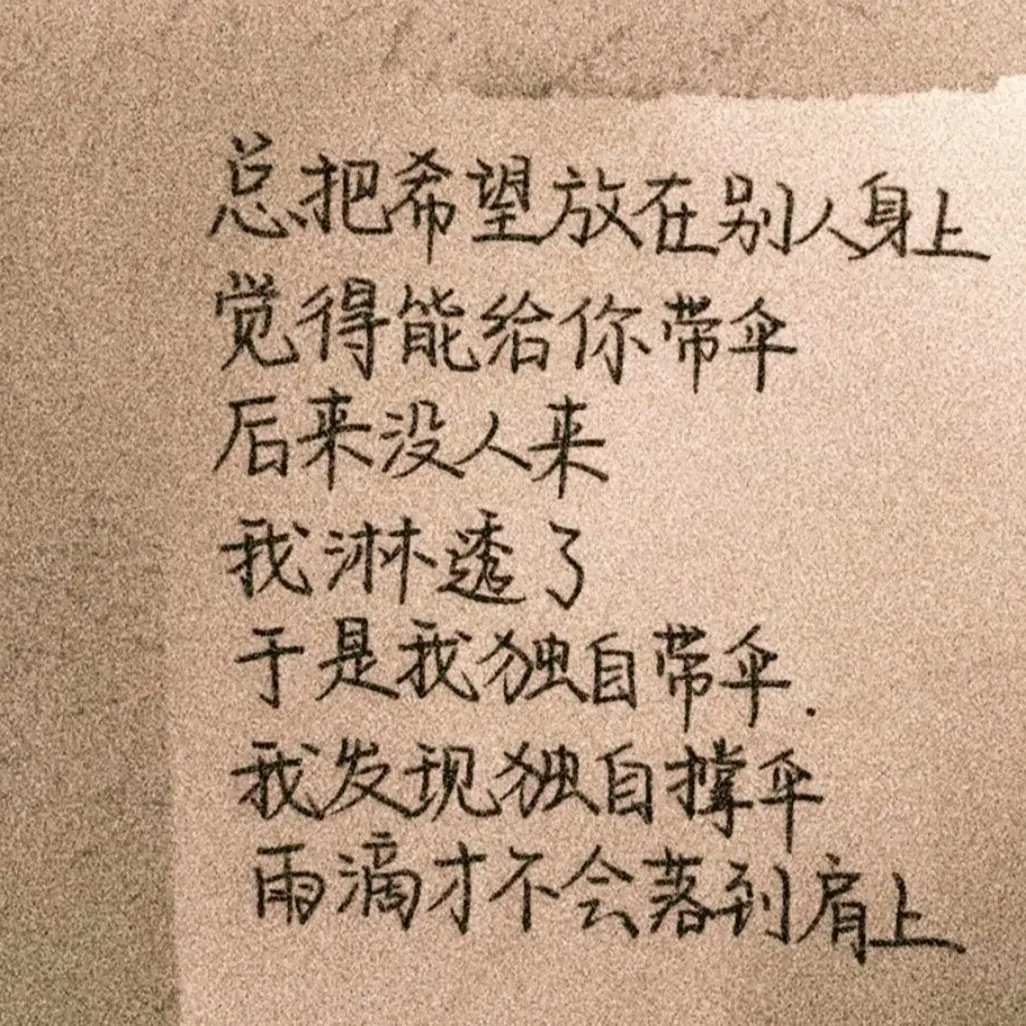 总把希望放在别人身上
觉得能给你带伞
后来没人来
我淋透了
于是我独自带伞.
我发现独自撑伞
雨滴才不会落到肩上